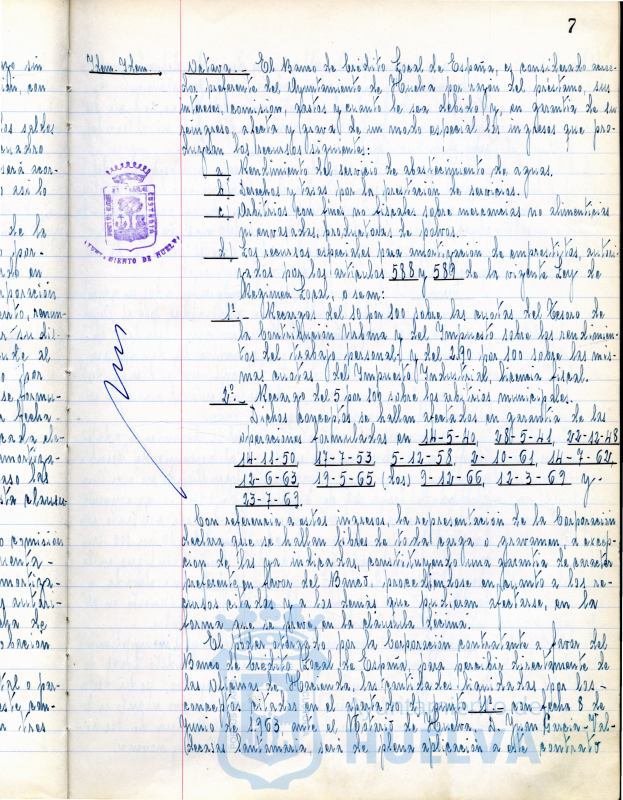 7
Idem. Idem.
Octava.- El Banco de Crédito Local de España, es considerado acree-
dor preferente del Ayuntamiento de Huelva por razon del prestamo, sus
intereses, comision, gastos y cuanto le sea debido y, en garantia de su
reingreso, afecta y grava de un modo especial los ingresos que pro-
duzcan los recursos siguientes:
a) Rendimiento del servicio de abastecimiento de aguas.
b) Derechos y tasas por la prestacion de servicios.
c) Arbitrios con fines no fiscales sobre mercancias no alimenticias
ni envasadas, productoras de polvos.
d) Los recursos especiales para amortizacion de emprestitos, autori-
zados por los articulos 588 y 589 de la vigente Ley de
Regimen Local, o sean:
1º.- Recargos del 10 por 100 sobre las cuotas del Tesoro de
la Contribucion Urbana y del Impuesto sobre los rendimien-
tos del trabajo personal; y del 2,90 por 100 sobre las mis-
mas cuotas del Impuesto Industrial, licencia fiscal.
2º.- Recargo del 5 por 100 sobre los arbitrios municipales.
Dichos conceptos se hallan afectados en garantia de las
operaciones formuladas en 14-5-40, 28-5-41, 22-12-48
14-11-50, 17-7-53, 5-12-58, 2-10-61, 14-7-62,
12-6-63, 19-5-65, (dos) 9-12-66, 12-3-69 y
23-7-69.
Con referencia a estos ingresos, la representacion de la Corporacion
declara que se hallan libres de toda carga o gravamen, a excep-
cion de las ya indicadas, constituyendo una garantia de caracter
preferente en favor del Banco, procediendose en cuanto a los re-
cursos citados y los demás que pudieran afectarse, en la
forma que se prevé en la cláusula decima.
El poder otorgado por la Corporacion contratante a favor del
Banco de Credito Local de España, para percibir directamente de
las Oficinas de Hacienda, las cantidades liquidadas por los
conceptos citados en el apartado d) punto 1º- con fecha 8 de
Junio de 1963 ante el Notario de Huelva, D. Juan Garcia-Val-
decasas Santamaria, será de plena aplicacion a este contrato
MIENTO DE HUELV
HUELVA